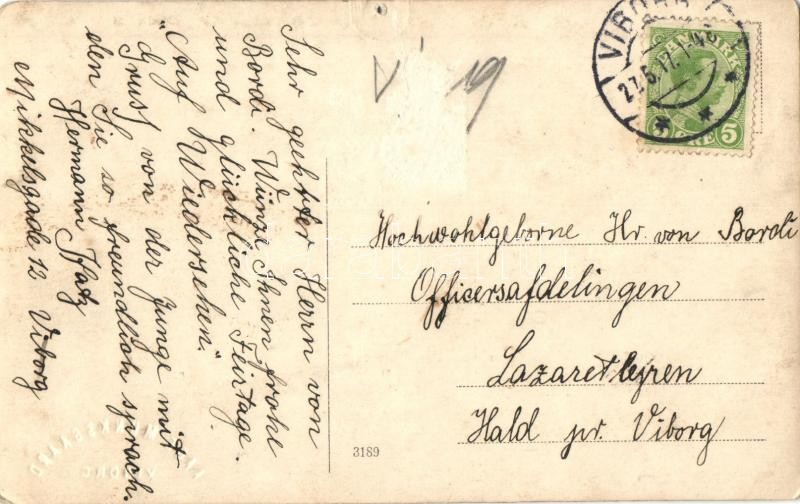 Sehr geehrter Herrn von
Bordi. Wünze Ihnen frohe
und glückliche Feirtage.
"Auf Wiedersehen."
Grust von der Junge mit
den Sie so freundlich sprach.
Hermann
Mikkelsgade 12 Viborg
V 19
VIBORG
27.5.17. 1-4
DANMARK
5 ØRE 5
Hochwohlgeborne Hr. von Bordi
Officersafdelingen
Lazaretlejren
Hald pr. Viborg
3189
VIBORG